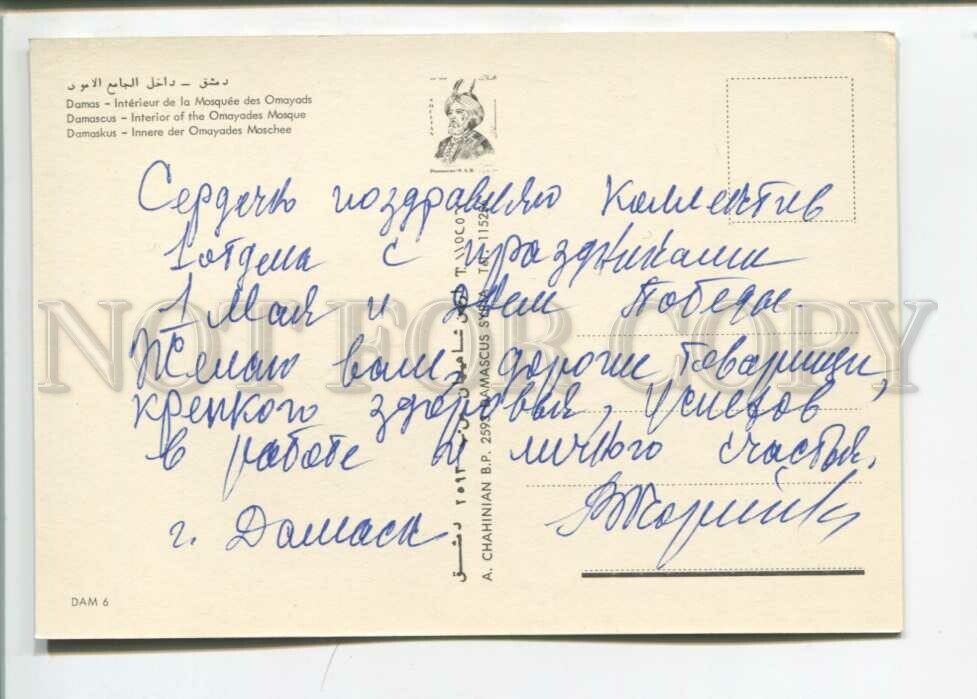 دمشق – داخل الجامع الاموي
Damas – Intérieur de la Mosquée des Omayads
Damascus – Interior of the Omayades Mosque
Damaskus – Innere der Omayades Moschee
Сердечно поздравляю коллектив
1 отдела с праздниками
1 Мая и Днем Победы.
Желаю вам, дорогие товарищи,
крепкого здоровья, успехов
в работе и личного счастья.
г. Дамаск
A. CHAHINIAN B.P. 2593 DAMASCUS SYRIA
DAM 6
NOT FOR COPY